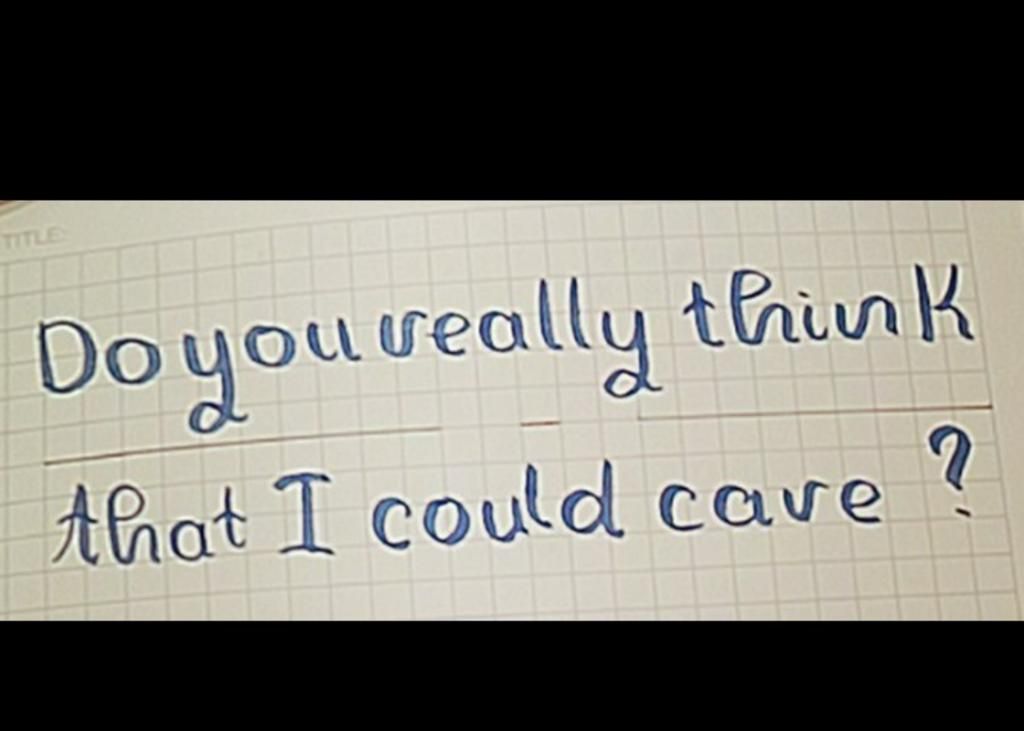 TITLE:
Do you really think
that I could care ?